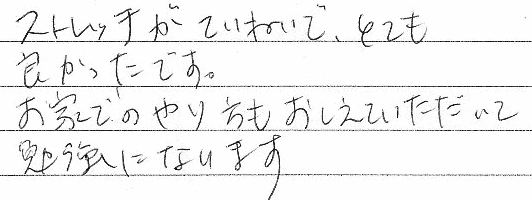 ストレッチがていねいで、とても
良かったです。
お家でのやり方もおしえていただいて
勉強になります